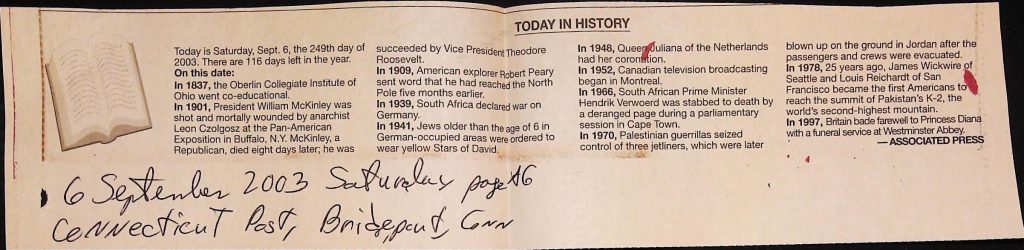 TODAY IN HISTORY
Today is Saturday, Sept. 6, the 249th day of
2003. There are 116 days left in the year.
On this date:
In 1837, the Oberlin Collegiate Institute of
Ohio went co-educational.
In 1901, President William McKinley was
shot and mortally wounded by anarchist
Leon Czolgosz at the Pan-American
Exposition in Buffalo, N.Y. McKinley, a
Republican, died eight days later; he was
succeeded by Vice President Theodore
Roosevelt.
In 1909, American explorer Robert Peary
sent word that he had reached the North
Pole five months earlier.
In 1939, South Africa declared war on
Germany.
In 1941, Jews older than the age of 6 in
German-occupied areas were ordered to
wear yellow Stars of David.
In 1948, Queen Juliana of the Netherlands
had her coronation.
In 1952, Canadian television broadcasting
began in Montreal.
In 1966, South African Prime Minister
Hendrik Verwoerd was stabbed to death by
a deranged page during a parliamentary
session in Cape Town.
In 1970, Palestinian guerrillas seized
control of three jetliners, which were later
blown up on the ground in Jordan after the
passengers and crews were evacuated.
In 1978, 25 years ago, James Wickwire of
Seattle and Louis Reichardt of San
Francisco became the first Americans to
reach the summit of Pakistan's K-2, the
world's second-highest mountain.
In 1997, Britain bade farewell to Princess Diana
with a funeral service at Westminster Abbey.
— ASSOCIATED PRESS
6 September 2003 Saturday page A6
Connecticut Post, Bridgeport, Conn